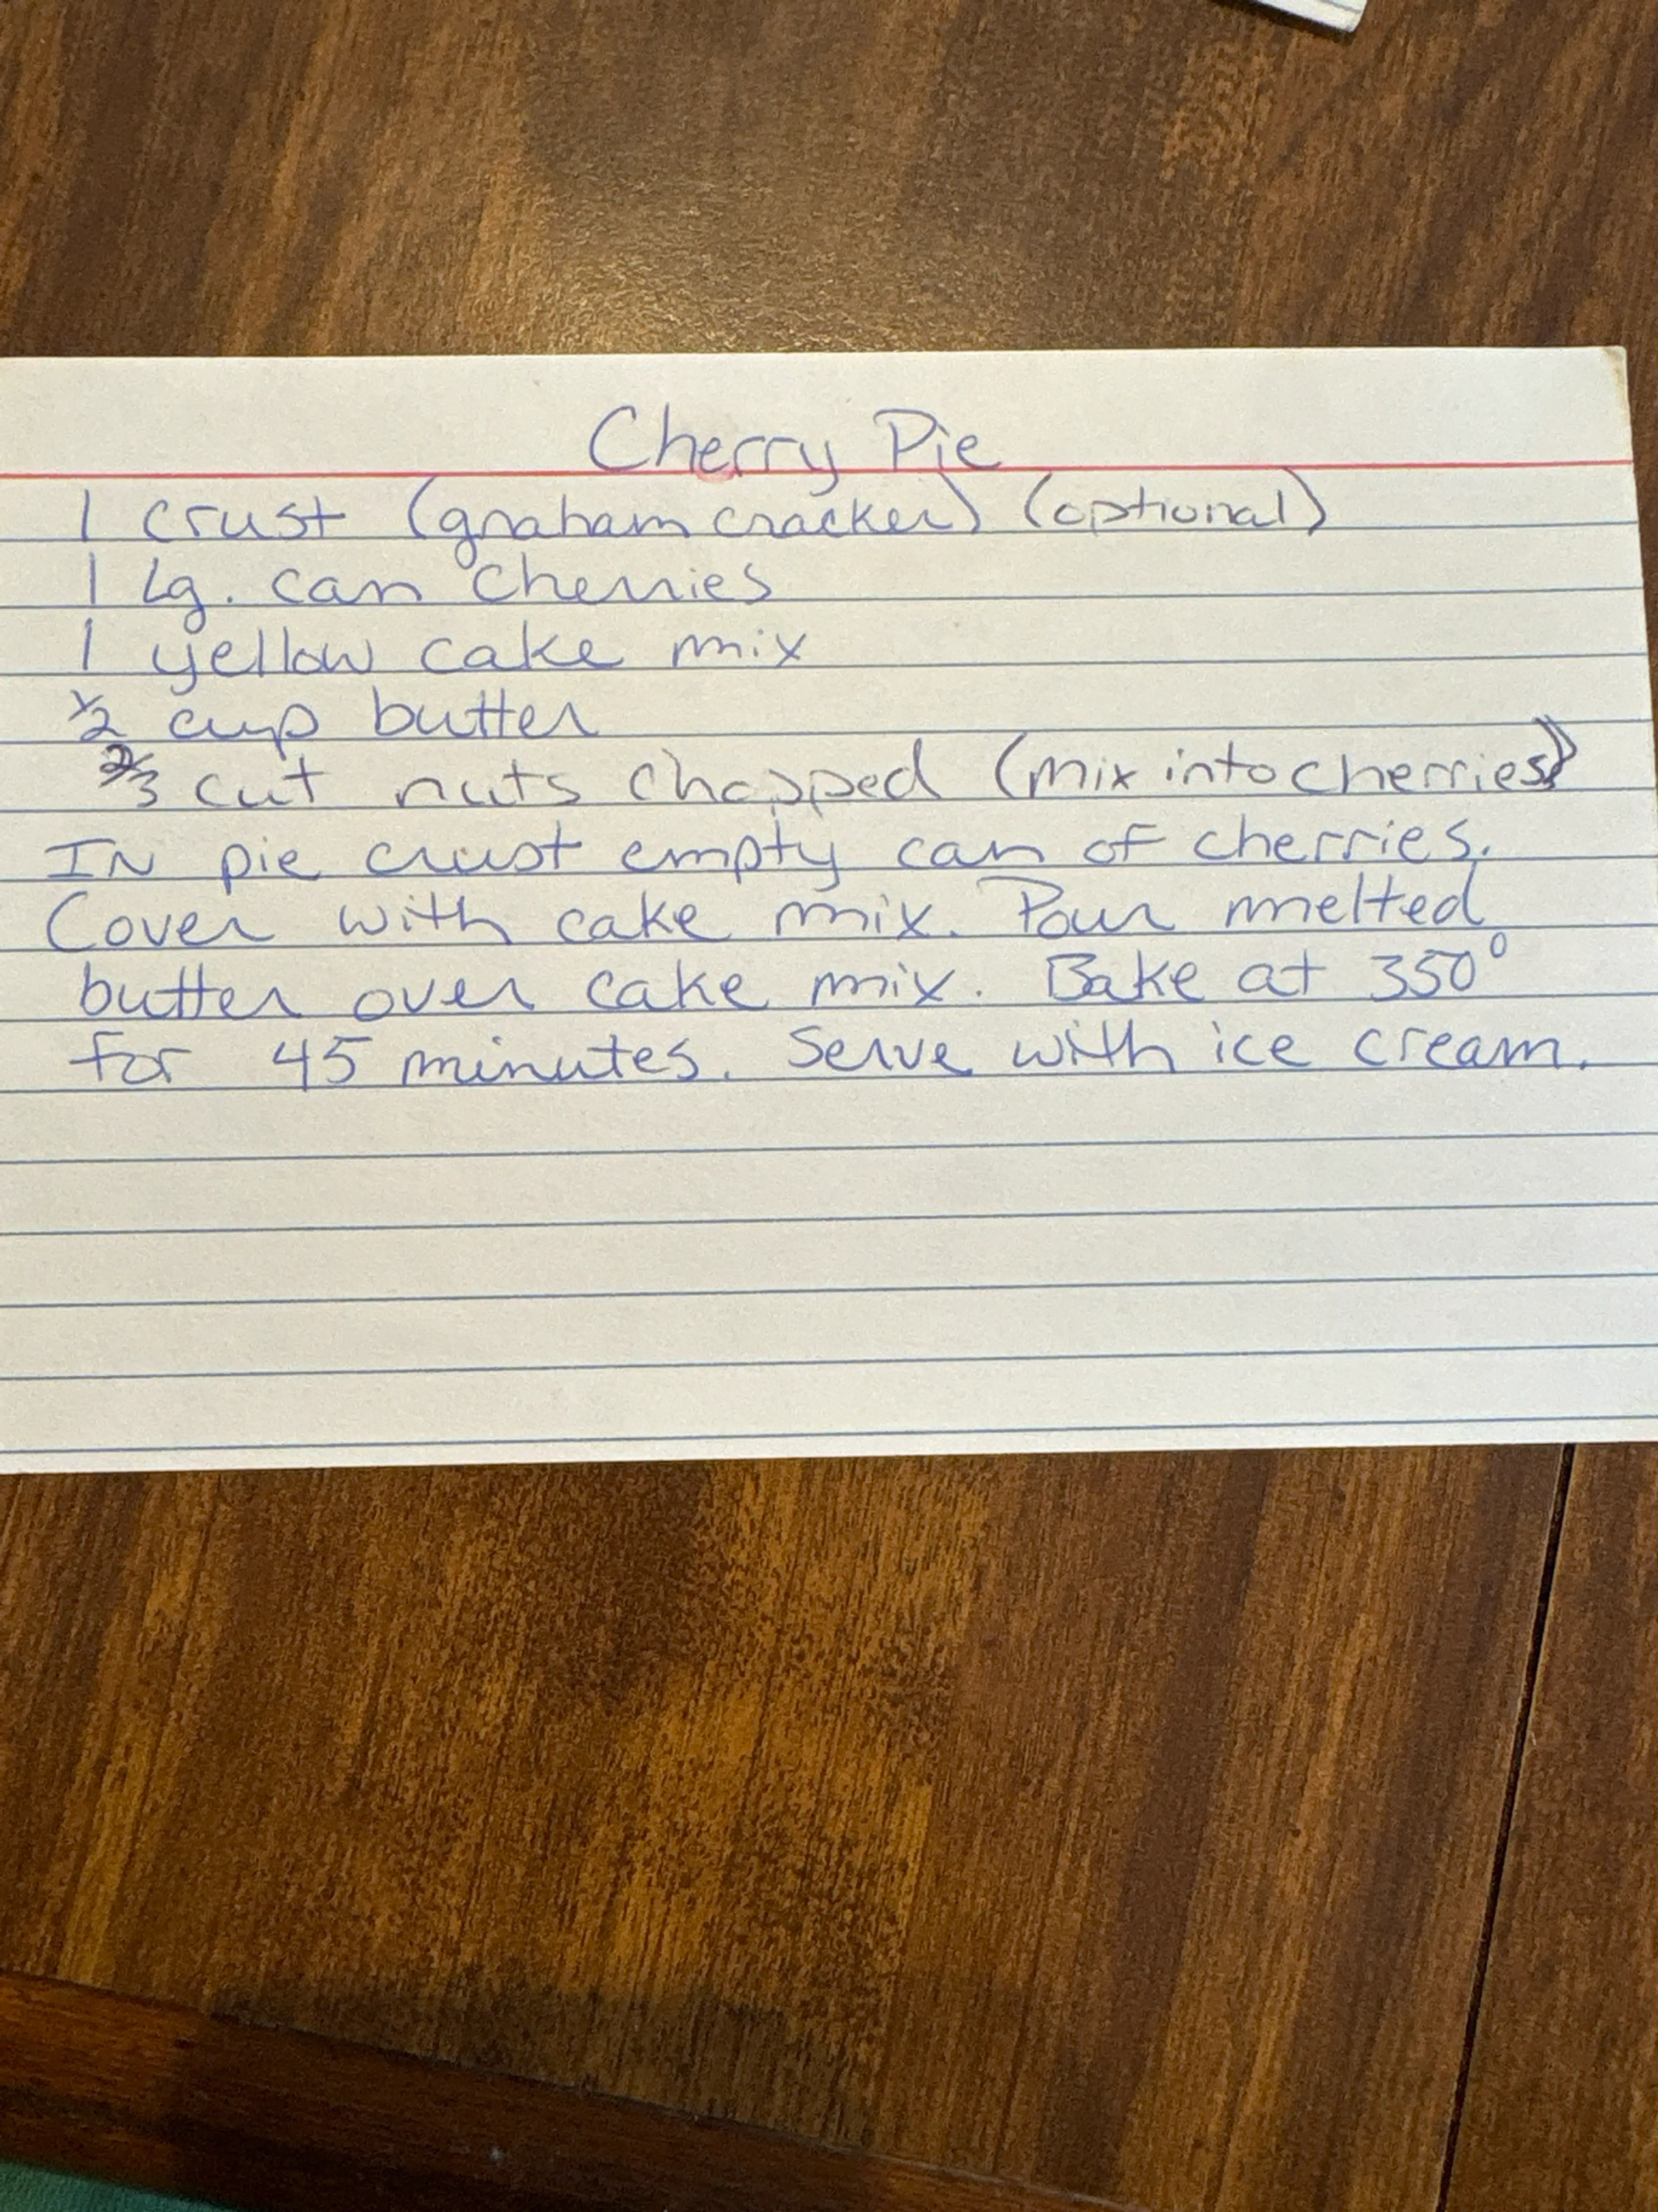 Cherry Pie
1 crust (graham cracker) (optional)
1 Lg. can cherries
1 yellow cake mix
1/2 cup butter
2/3 cut nuts chopped (mix into cherries)
IN pie crust empty can of cherries.
Cover with cake mix. Pour melted
butter over cake mix. Bake at 350°
for 45 minutes. Serve with ice cream.